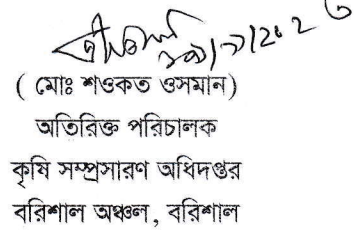 ( মোঃ শওকত ওসমান)
অতিরিক্ত পরিচালক
কৃষি সম্প্রসারণ অধিদপ্তর
বরিশাল অঞ্চল, বরিশাল